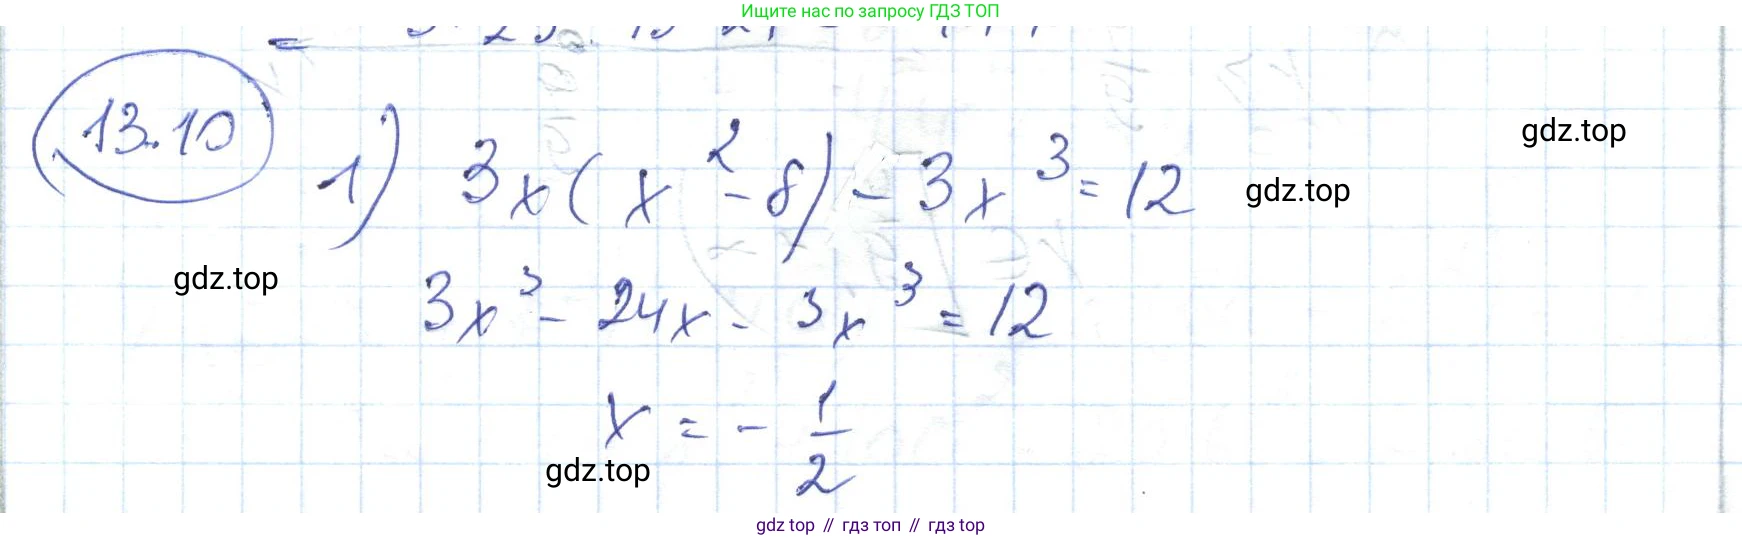 Ищите нас по запросу ГДЗ ТОП
13.10
gdz.top
1) 3x(x²-8)-3x³=12
gdz.top
gdz.top
3x³-24x-3x³=12
x=-1/2
gdz.top
gdz top // гдз топ // gdz top